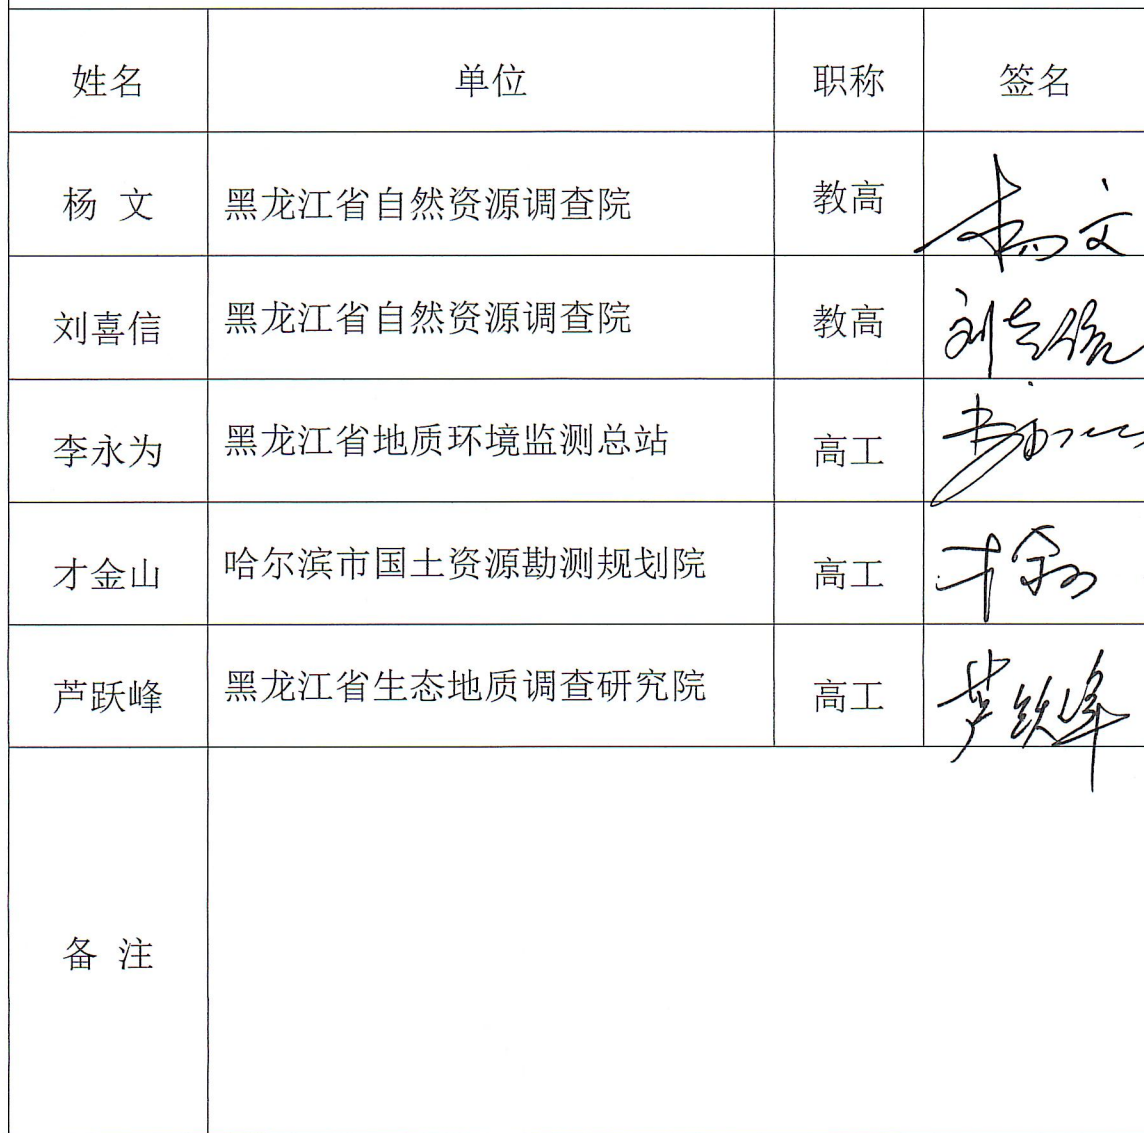 姓名 单位 职称 签名
杨 文 黑龙江省自然资源调查院 教高 杨文
刘喜信 黑龙江省自然资源调查院 教高 刘喜信
李永为 黑龙江省地质环境监测总站 高工
才金山 哈尔滨市国土资源勘测规划院 高工 才金山
芦跃峰 黑龙江省生态地质调查研究院 高工 芦跃峰
备 注